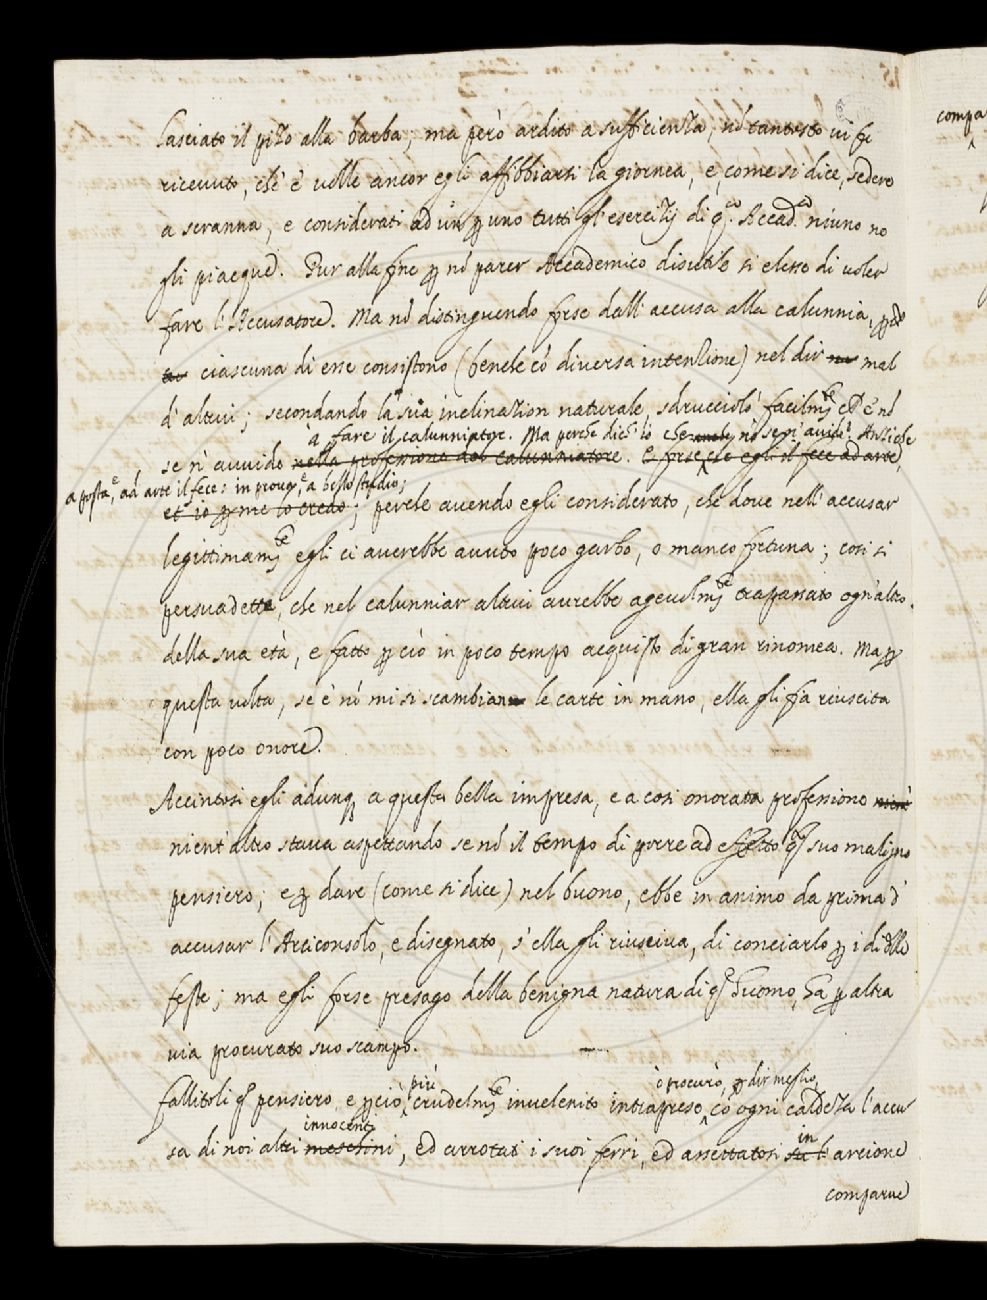 lasciato il pizo alla barba, ma però ardito a sufficienza, nō tantosto ui fu
riceuuto, ch'è uolle ancor egli affibbiarsi la giornea, e, come si dice, sedere
a scranna, e considerati ad un p uno tutti gl'esercizij di q.ᵃ Accad.ᵃ niuno ne
gli piacque. Pur alla fine p nō parer Accademico disutile si elesse di uoler
fare l'Accusatore. Ma nō distinguendo forse dall'accusa alla calunnia,
ciascuna di esse consistono (benche cō diversa intenzione) nel dir mal
d'altrui; secondando la sua inclinazion naturale, sdrucciolò facilmᵗᵉ ch'è nō
à fare il calunniatore. Ma perche dich'io che nō se n'auide? Anzi che
se n'auuide nella professione del calunniatore. e forse che egli il fece ad arte,
a posta, e ad arte il fece: in pruoua, e a bello studio;
et io p me lo credo; perche auendo egli considerato, che doue nell'accusar
legittimamᵗᵉ egli ci auerebbe auuto poco garbo, o manco fortuna; cosi si
persuadette, che nel calunniar altrui aurebbe ageuolmᵗᵉ trapassato ogn'altro
della sua età, e fatto p ciò in poco tempo acquisto di gran rinomea. Ma p
questa uolta, se e' nō mi si scambian le carte in mano, ella gli fia riuscita
con poco onore.
Accintosi egli adunq a questa bella impresa, e a cosi onorata professione
nient'altro staua aspettando se nō il tempo di porre ad effetto q suo maligno
pensiero; e p dare (come si dice) nel buono, ebbe in animo da prima d'
accusar l'Arciconsolo, e disegnato, s'ella gli riusciua, di conciarlo p i dì delle
feste; ma egli forse presago della benigna natura di q huomo, s'a p altra
uia procurato suo scampo.
più
è procurò, p dir meglio,
fallitoli q pensiero, e p ciò crudelmᵗᵉ inuelenito intraprese cō ogni caldeza l'accu
innocenti
in
sa di noi altri meschini, ed arrotati i suoi ferri, ed assettatosi su l'arcione
comparue
compa